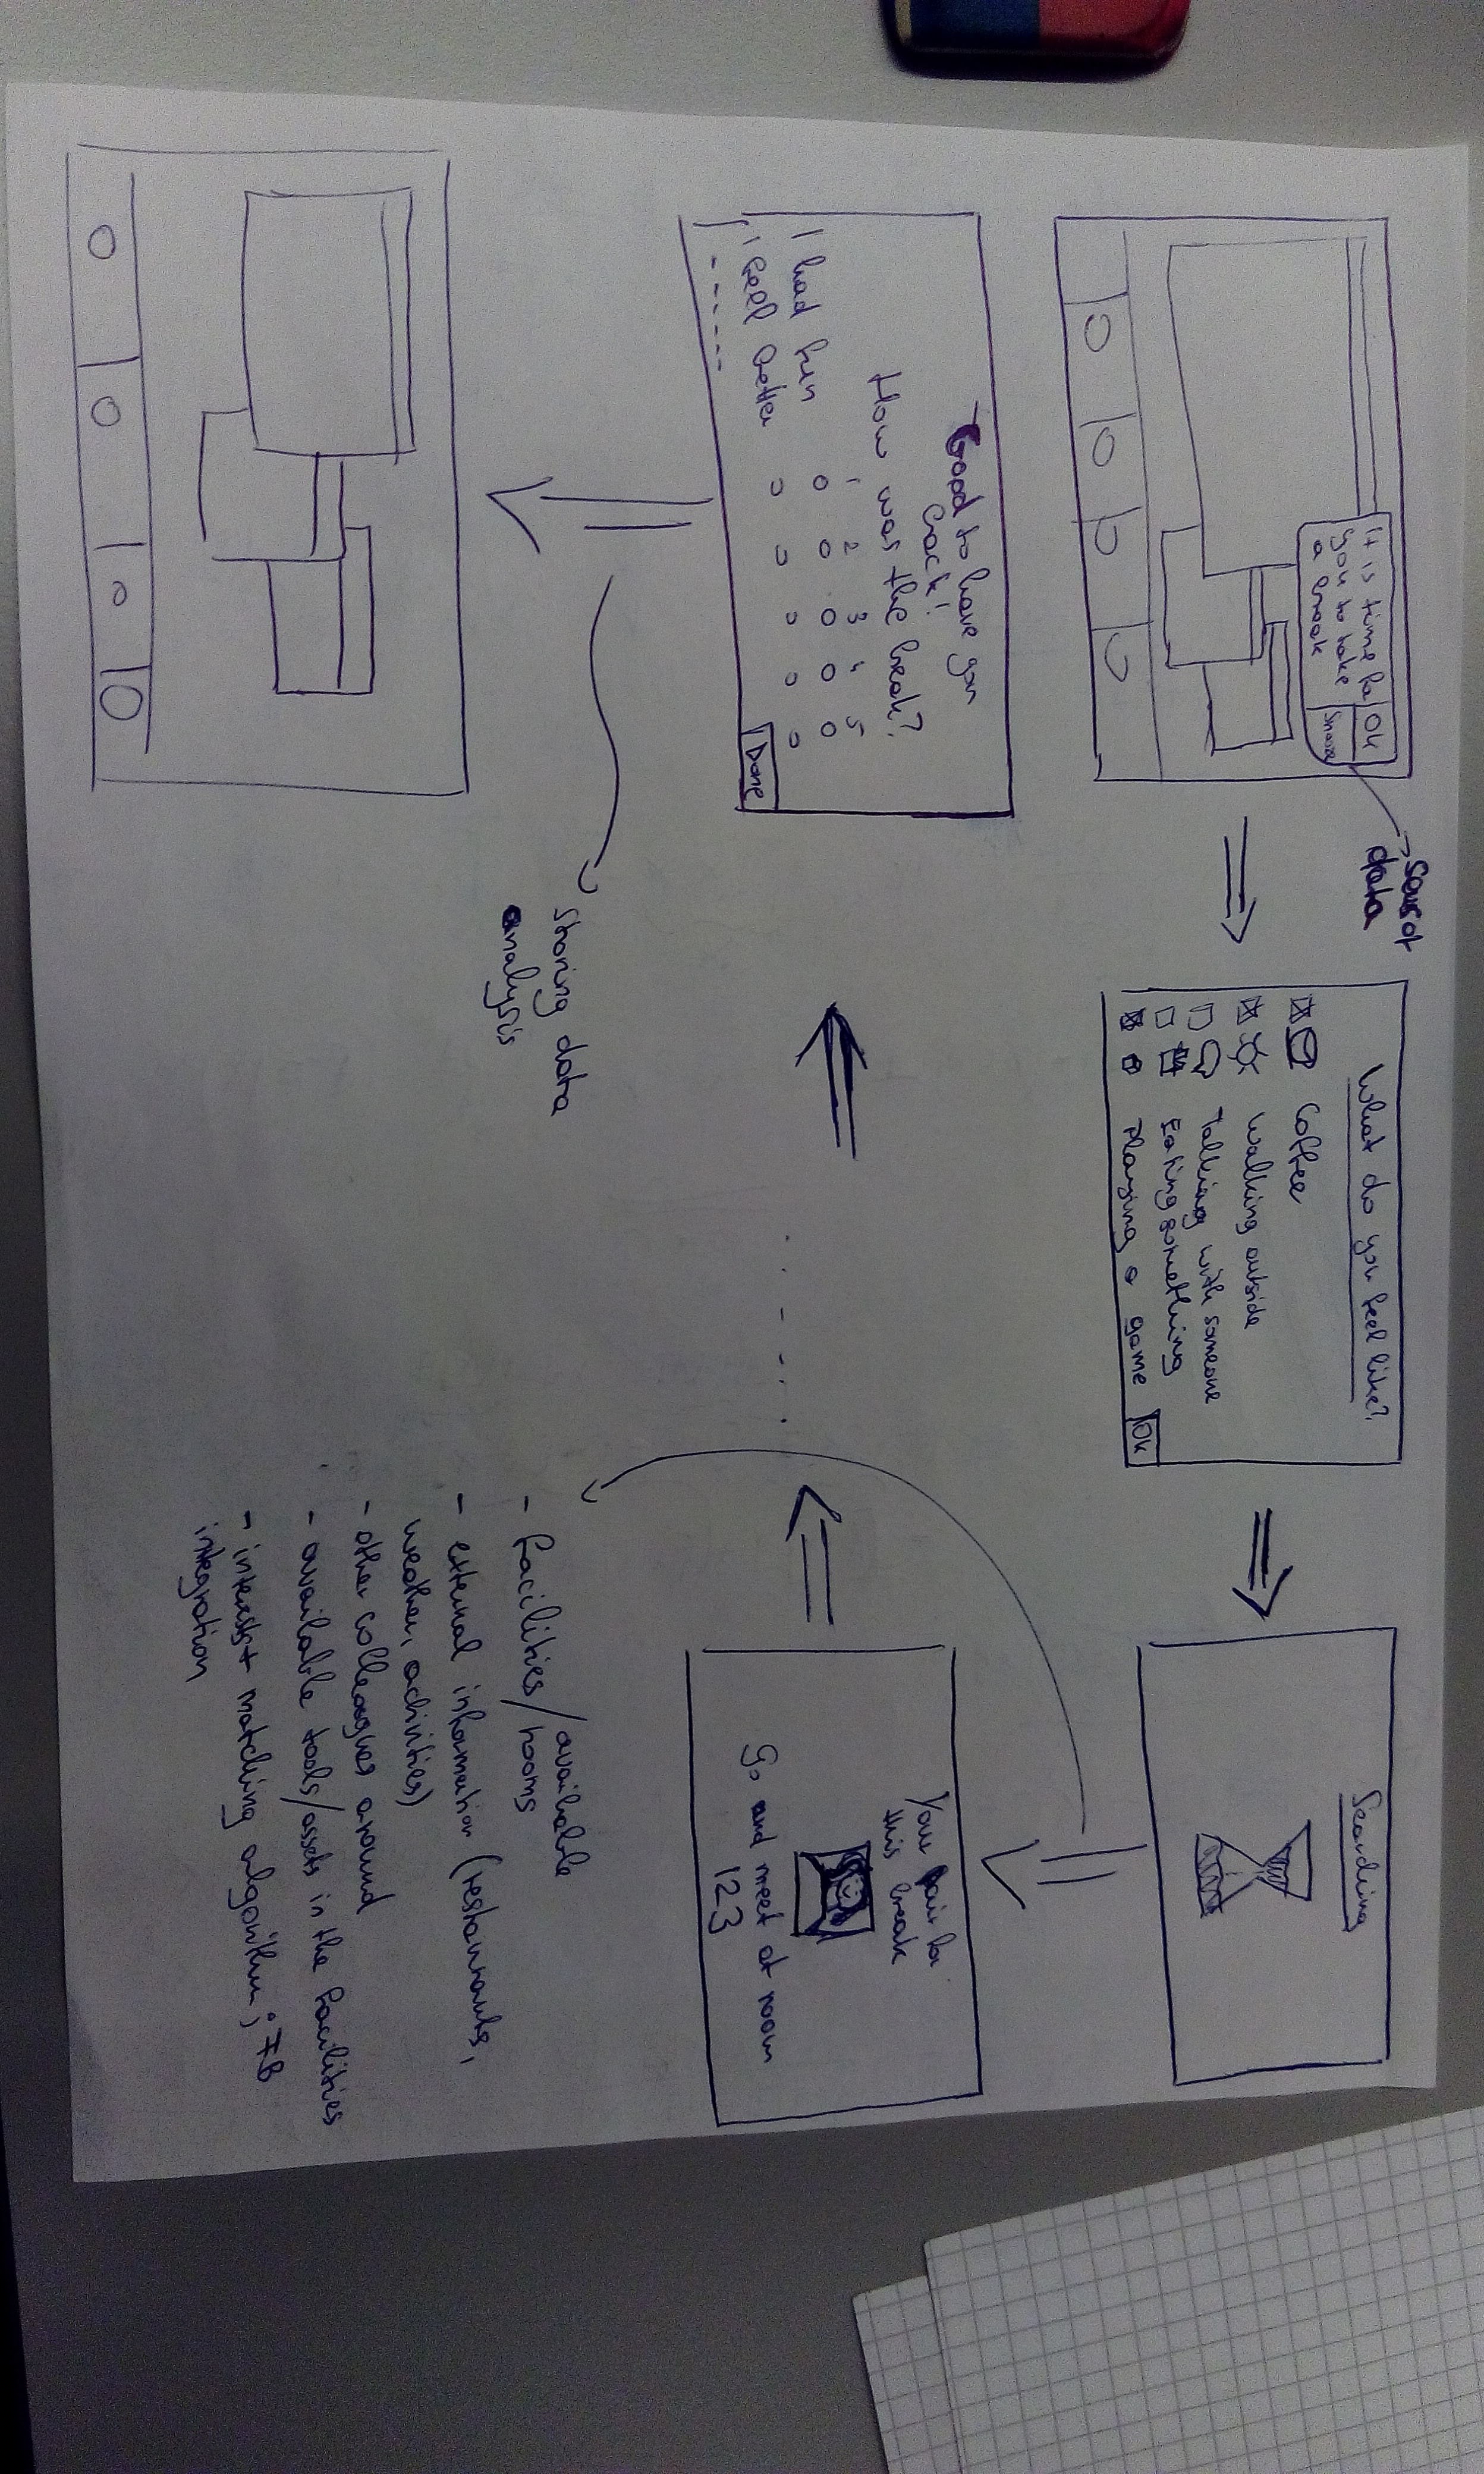 It is time for
you to take
a break
Ok
Snooze
data
What do you feel like?
Coffee
Walking outside
Talking with someone
Eating something
Playing a game
Ok
Searching
Your pair for
this break
Go and meet at room
123
- facilities/available
rooms
- external information (restaurants,
weather, activities)
- other colleagues around
- available tools/assets in the facilities
- interest matching algorithm; FB
integration
Good to have you
back!
How was the break?
1 2 3 4 5
I had fun
I feel better
Done
Storing data
analysis